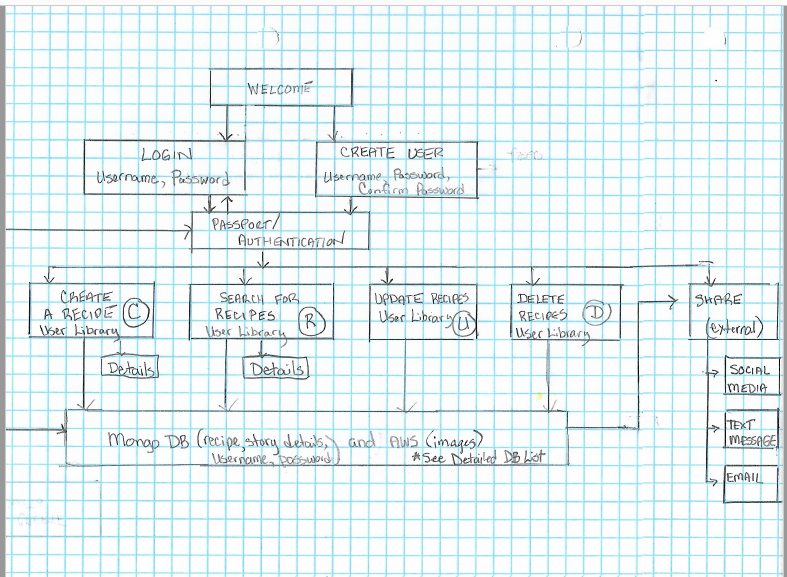 WELCOME
LOGIN
Username, Password
CREATE USER
Username, Password,
Confirm Password
PASSPORT/
AUTHENTICATION
CREATE
A RECIPE C
User Library
Details
SEARCH FOR
RECIPES R
User Library
Details
UPDATE RECIPES
User Library U
DELETE
RECIPES D
User Library
SHARE
(external)
SOCIAL
MEDIA
TEXT
MESSAGE
EMAIL
Mongo DB (recipe, story details, and AWS (images)
Username, password) *See Detailed DB List